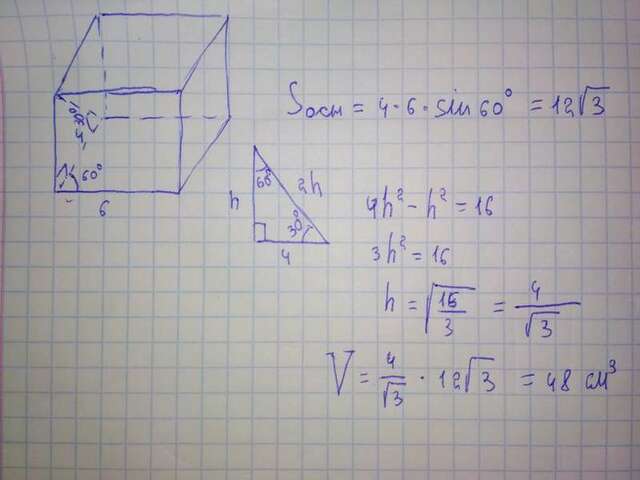 Sосн = 4 · 6 · sin 60° = 12√3
60°
6
60°
2h
h
30°
4
4h² - h² = 16
3h² = 16
h = √(16/3) = 4/√3
V = 4/√3 · 12√3 = 48 см³